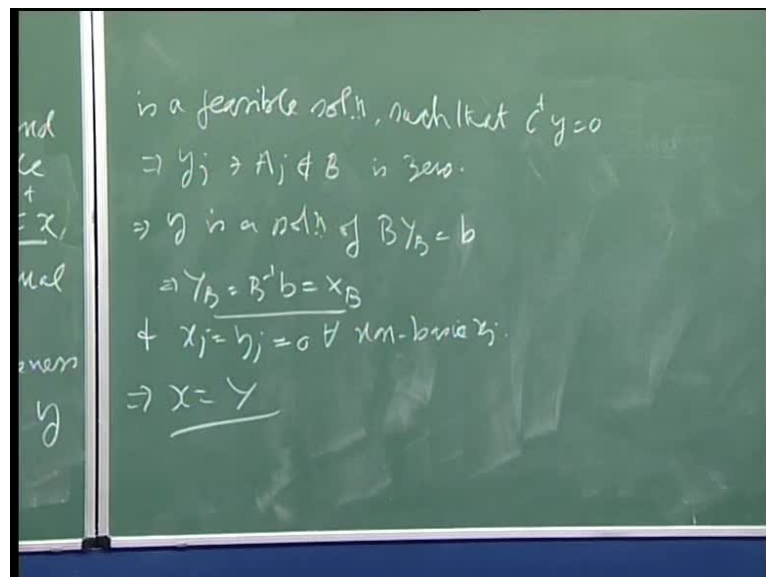 nd
ce
t
= x
nal
eness
y
is a feasible sol.n, such that c^t y = 0
⇒ y_j ∋ A_j ∉ B is zero.
⇒ y is a sol.n of B Y_B = b
⇒ Y_B = B^-1 b = X_B
& x_j = y_j = 0 ∀ non-basic x_j.
⇒ x = y